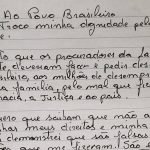 Ao Povo Brasileiro
troco minha dignidade pela
e:
o que os procuradores da La
deveriam fazer é pedir des
ileiro, aos milhões de desempre
família, pelo mal que fiz
racia, a Justiça e ao país.
ero que saibam que não a
has meus direitos e minha
demonstrei que são falsas
me fizeram. São e